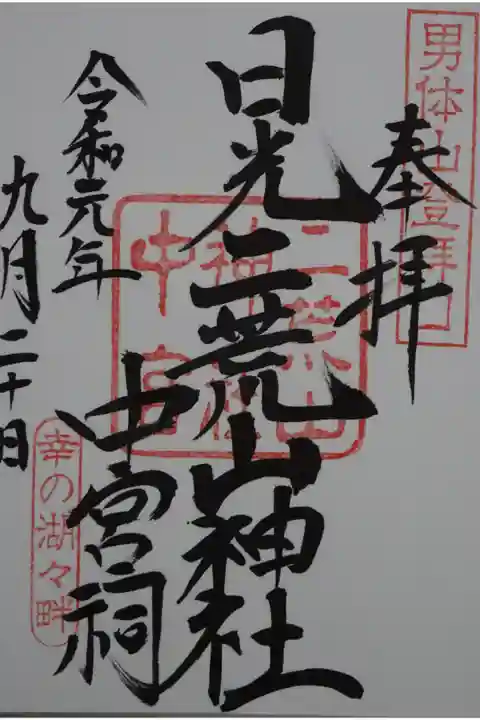 男体山登拝口
奉拝
日光二荒山神社
中宮祠
二荒山
神社
中宮
令和元年
九月二十日
幸の湖々畔